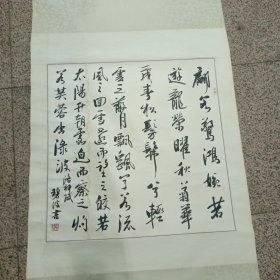 翩若惊鸿婉若
遊龍榮曜秋菊華
茂春松髣髴兮輕
雲之蔽月飄飄兮若流
風之回雪遠而望之皎若
太陽升朝霞迫而察之灼
若芙蓉出渌波洛神賦
書